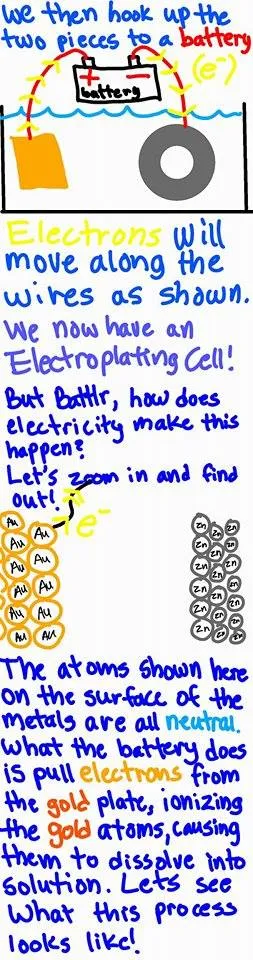 We then hook up the
two pieces to a battery
(e⁻)
+ -
battery
Electrons will
move along the
wires as shown.
We now have an
Electroplating Cell!
But Battlr, how does
electricity make this
happen?
Let's zoom in and find
out!
e⁻
Au Au Zn Zn Zn
Au Au Zn Zn Zn
Au Au Zn Zn Zn
Au Au Zn Zn Zn
Au Au Zn Zn Zn
Au Au Zn Zn Zn
The atoms shown here
on the surface of the
metals are all neutral.
What the battery does
is pull electrons from
the gold plate, ionizing
the gold atoms, causing
them to dissolve into
solution. Lets see
what this process
looks like!